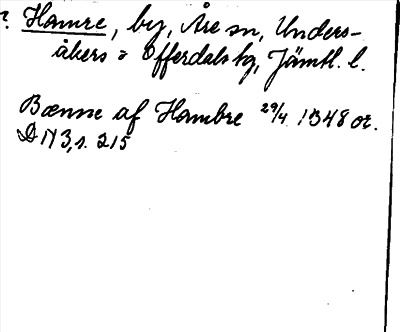 ? Hamre, by, Åre sn, Unders-
åkers o Offerdals hg, Jämtl. l.
Bænne af Hambre 29/4 1348 or.
DN 3, s. 215